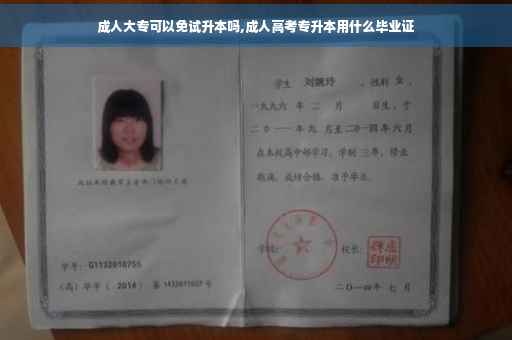 成人大专可以免试升本吗,成人高考专升本用什么毕业证
学生 刘婉玲 ,性别 女 ,
一九九六 年 二 月 日生,于
二〇一一 年 九 月至二〇一四 年 六 月
在本校高中部学习,学制 三 年,修业
期满,成绩合格,准予毕业。
学校: 校长:
学号: G1132010755
(高)毕字( 2014 )第 1432011027 号
二〇一四年 七 月